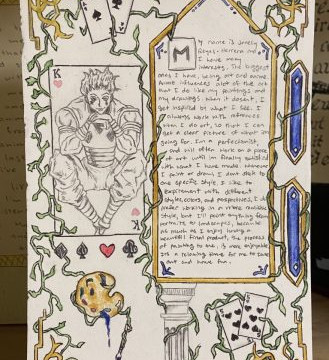 K
My name is Jovely
Reyes-Herrera and
I have many
interests. The biggest
ones I have, being art and anime.
Anime influences alot of the art
that I do like my paintings and
my drawings. When it doesn't, I
get inspired by what I see. I
always work with references
when I do art, so that I can
get a clear picture of what im
going for. I'm a perfectionist,
and will often work on a piece
of art until im finally satisfied
with what I have made. Whenever
I paint or draw I dont stick to
one specific style. I like to
experiment with different
styles, colors, and perspectives. I
prefer working in a more realistic
style, but I'll paint anything from
portraits to landscapes, because
as much as I enjoy having a
beautiful final product, the process
of painting to me, is more enjoyable.
Its a relaxing time for me to make
art and have fun.
K
5
5